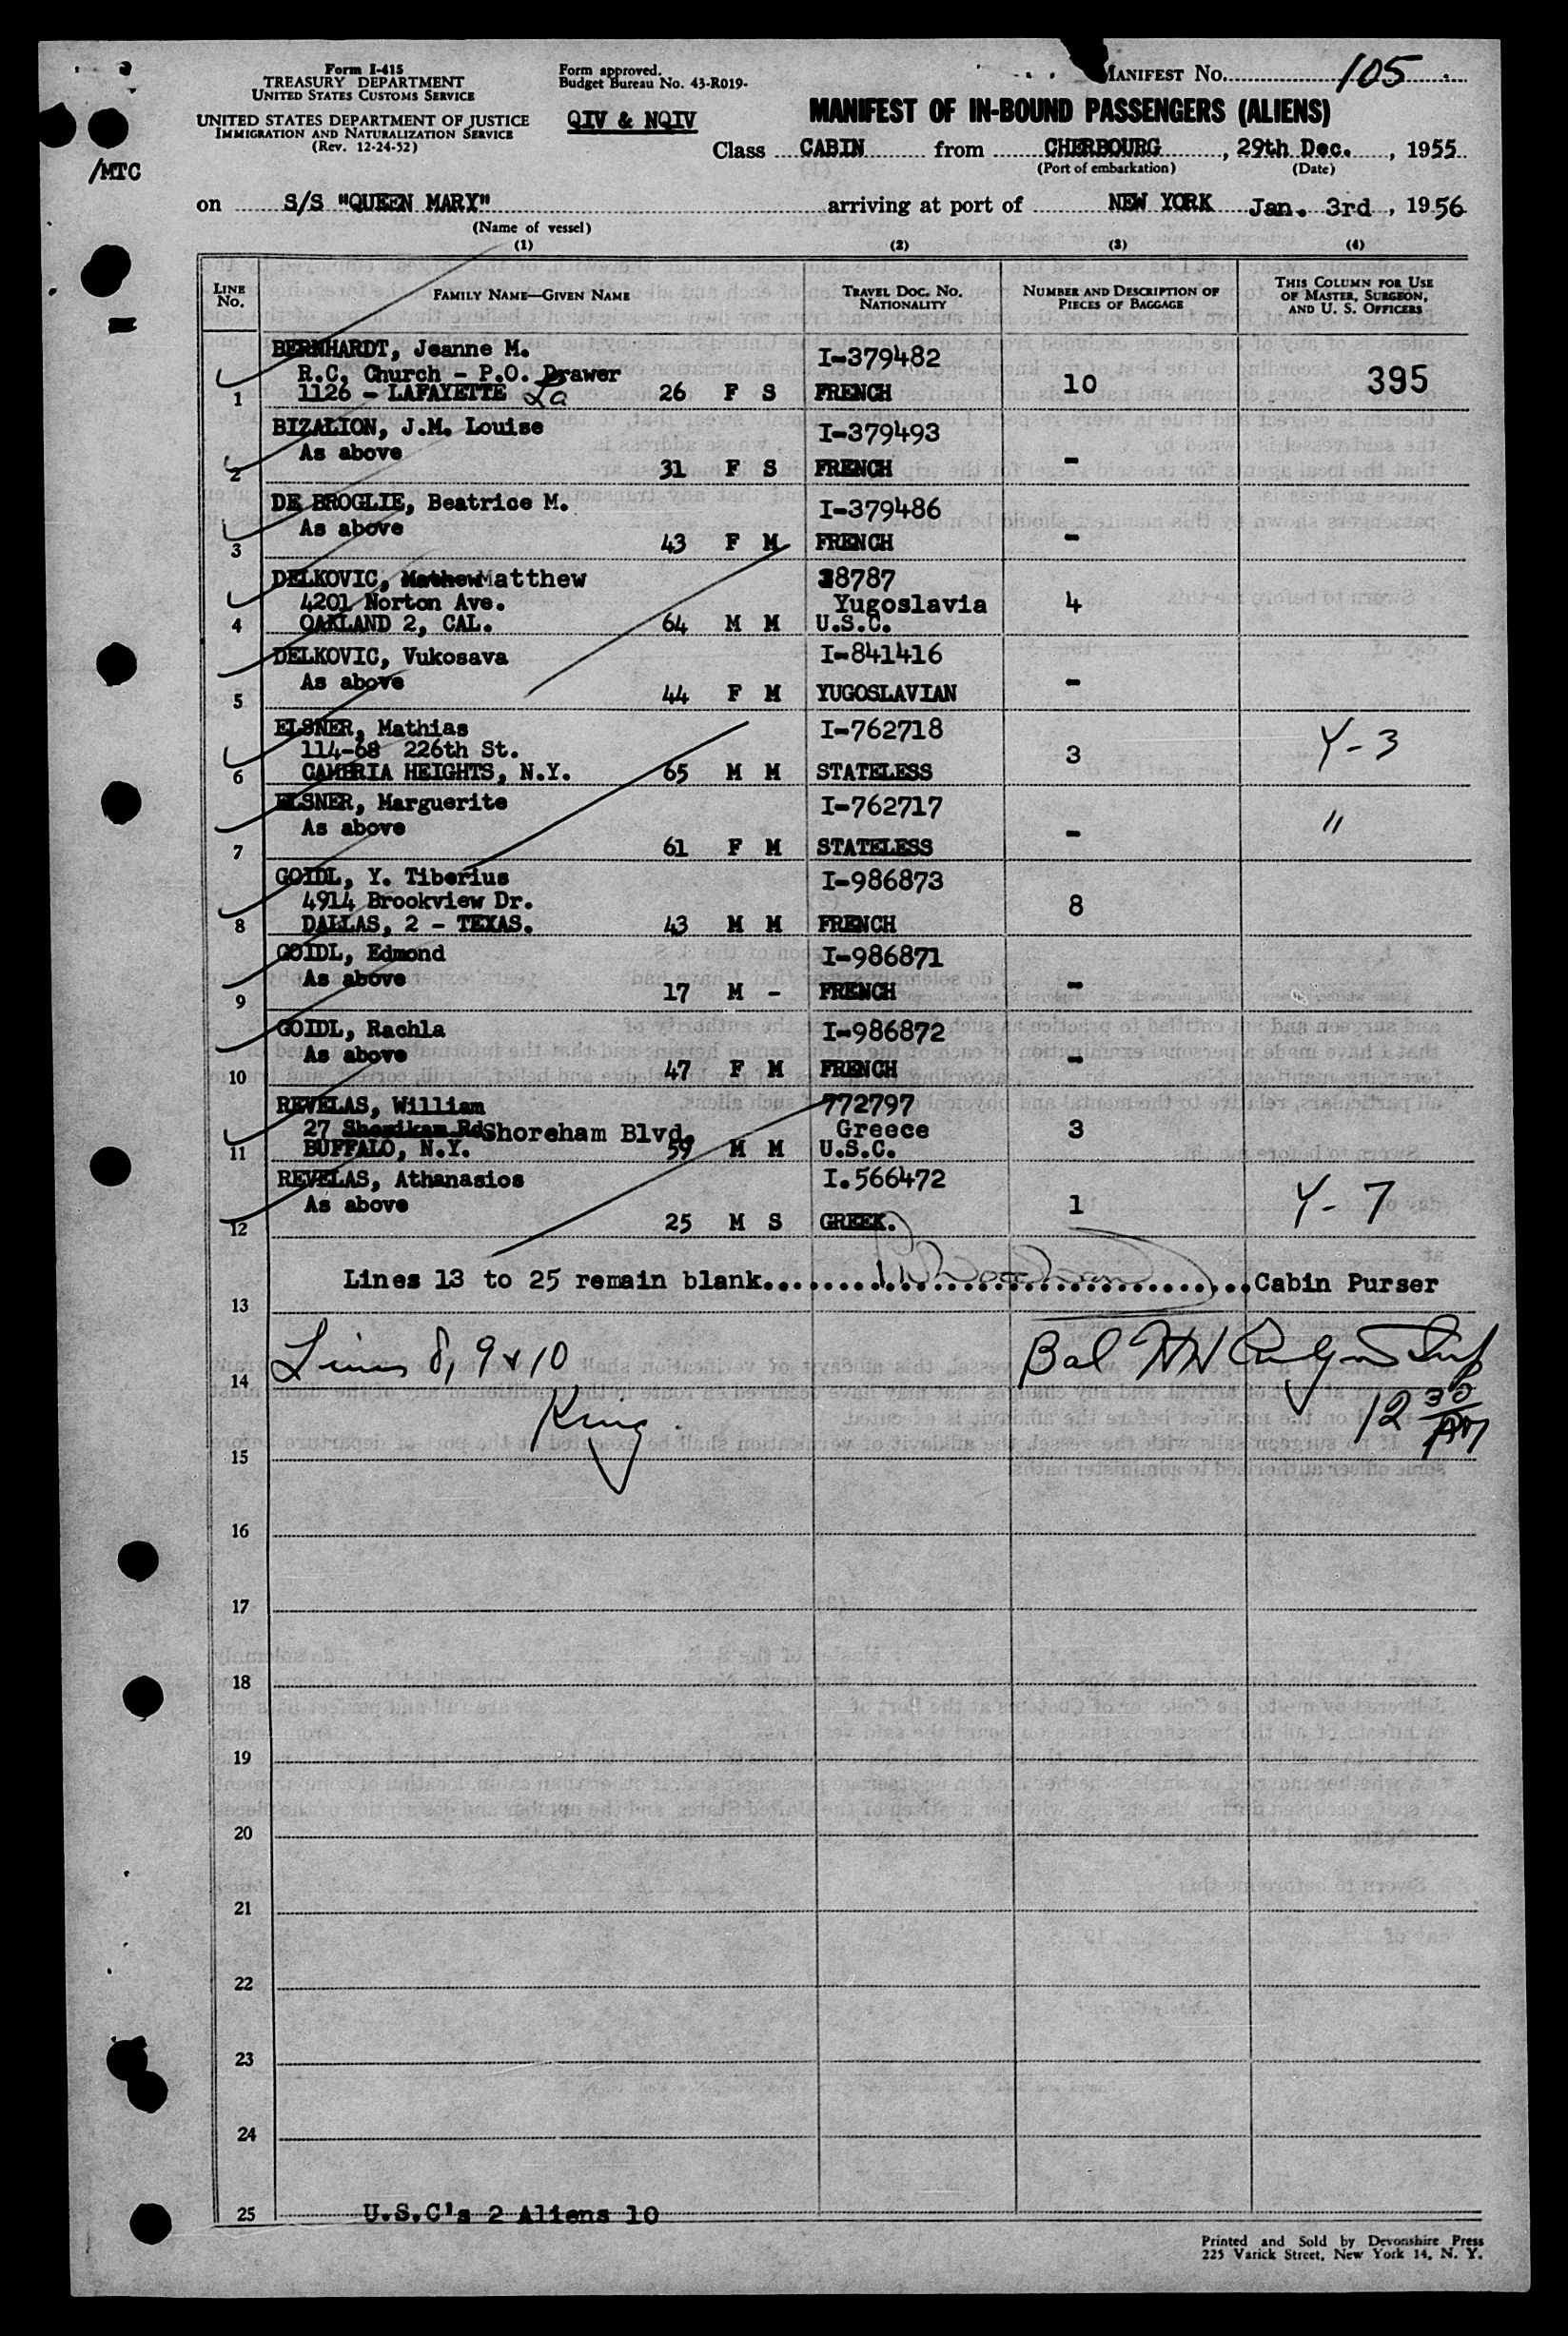 Form I-415
TREASURY DEPARTMENT
UNITED STATES CUSTOMS SERVICE
UNITED STATES DEPARTMENT OF JUSTICE
IMMIGRATION AND NATURALIZATION SERVICE
(Rev. 12-24-52)
/MTC
Form approved.
Budget Bureau No. 43-R019-
QIV & NQIV
MANIFEST NO. 105
MANIFEST OF IN-BOUND PASSENGERS (ALIENS)
Class CABIN from CHERBOURG, 29th Dec., 1955
(Port of embarkation) (Date)
on S/S "QUEEN MARY" arriving at port of NEW YORK Jan. 3rd, 1956
(Name of vessel)
(1) (2) (3) (4)
LINE NO. FAMILY NAME—GIVEN NAME TRAVEL DOC. NO. NATIONALITY NUMBER AND DESCRIPTION OF PIECES OF BAGGAGE THIS COLUMN FOR USE OF MASTER, SURGEON, AND U. S. OFFICERS
BERNHARDT, Jeanne M. I-379482
R.C. Church - P.O. Drawer
1 1126 - LAFAYETTE La 26 F S FRENCH 10 395
BIZALION, J.M. Louise I-379493
As above
2 31 F S FRENCH -
DE BROGLIE, Beatrice M. I-379486
As above
3 43 F M FRENCH -
DELKOVIC, Mathew Matthew 38787
4201 Norton Ave. Yugoslavia 4
4 OAKLAND 2, CAL. 64 M M U.S.C.
DELKOVIC, Vukosava I-841416
As above
5 44 F M YUGOSLAVIAN -
ELSNER, Mathias I-762718
114-68 226th St. 3 Y-3
6 CAMBRIA HEIGHTS, N.Y. 65 M M STATELESS
ELSNER, Marguerite I-762717
As above "
7 61 F M STATELESS -
GOIDL, Y. Tiberius I-986873
4914 Brookview Dr. 8
8 DALLAS, 2 - TEXAS. 43 M M FRENCH
GOIDL, Edmond I-986871
As above
9 17 M - FRENCH -
GOIDL, Rachla I-986872
As above
10 47 F M FRENCH -
REVELAS, William 772797
27 Shoreham Blvd. Greece 3
11 BUFFALO, N.Y. 59 M M U.S.C.
REVELAS, Athanasios I.566472
As above 1 Y-7
12 25 M S GREEK.
Lines 13 to 25 remain blank Cabin Purser
13
Lines 8, 9 & 10 Bal
14
King 12 30
15
16
17
18
19
20
21
22
23
24
25 U.S.C's 2 Aliens 10
Printed and Sold by Devonshire Press
225 Varick Street, New York 14, N. Y.